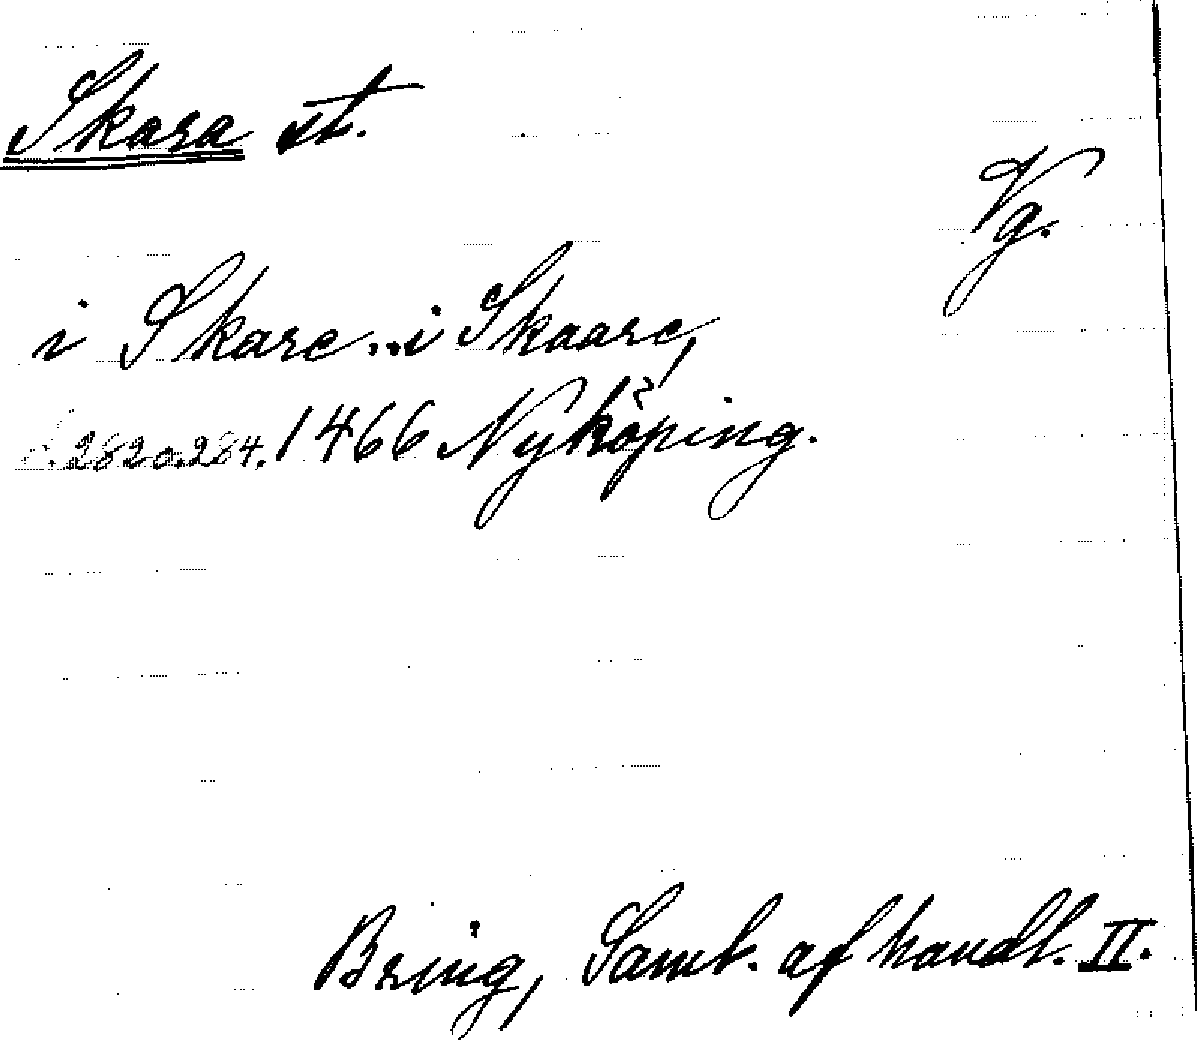 Skara st.
Vg.
i Skare... i Skaare,
s. 282 o. 284. 1466 Nyköping.
Bring, Saml. af handl. II.